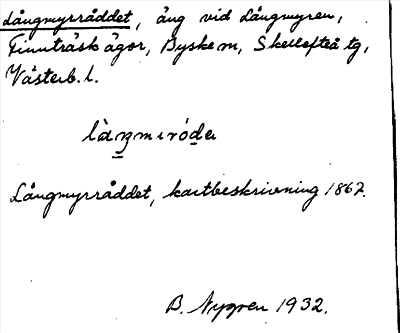 Långmyrråddet, äng vid Långmyren,
Finnträsk ägor, Byske sn, Skellefteå tg,
Västerb. l.
Långmyrråddet, kartbeskrivning 1867.
B. Nygren 1932.